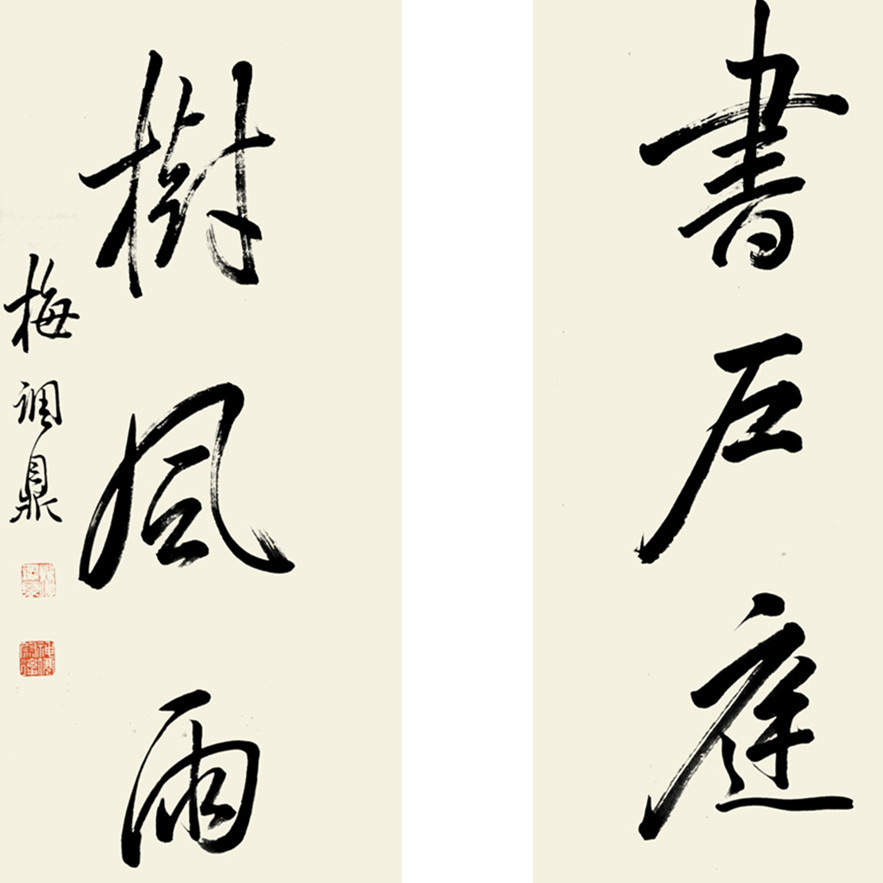 書戶庭
樹風雨
梅調鼎